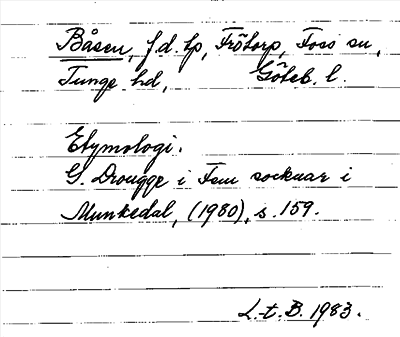 Båsen, f.d. tp, Frötorp, Foss sn,
Tunge hd, Göteb. l.
Etymologi.
G. Drougge i Fem socknar i
Munkedal, (1980), s. 159.
L.t.B. 1983.